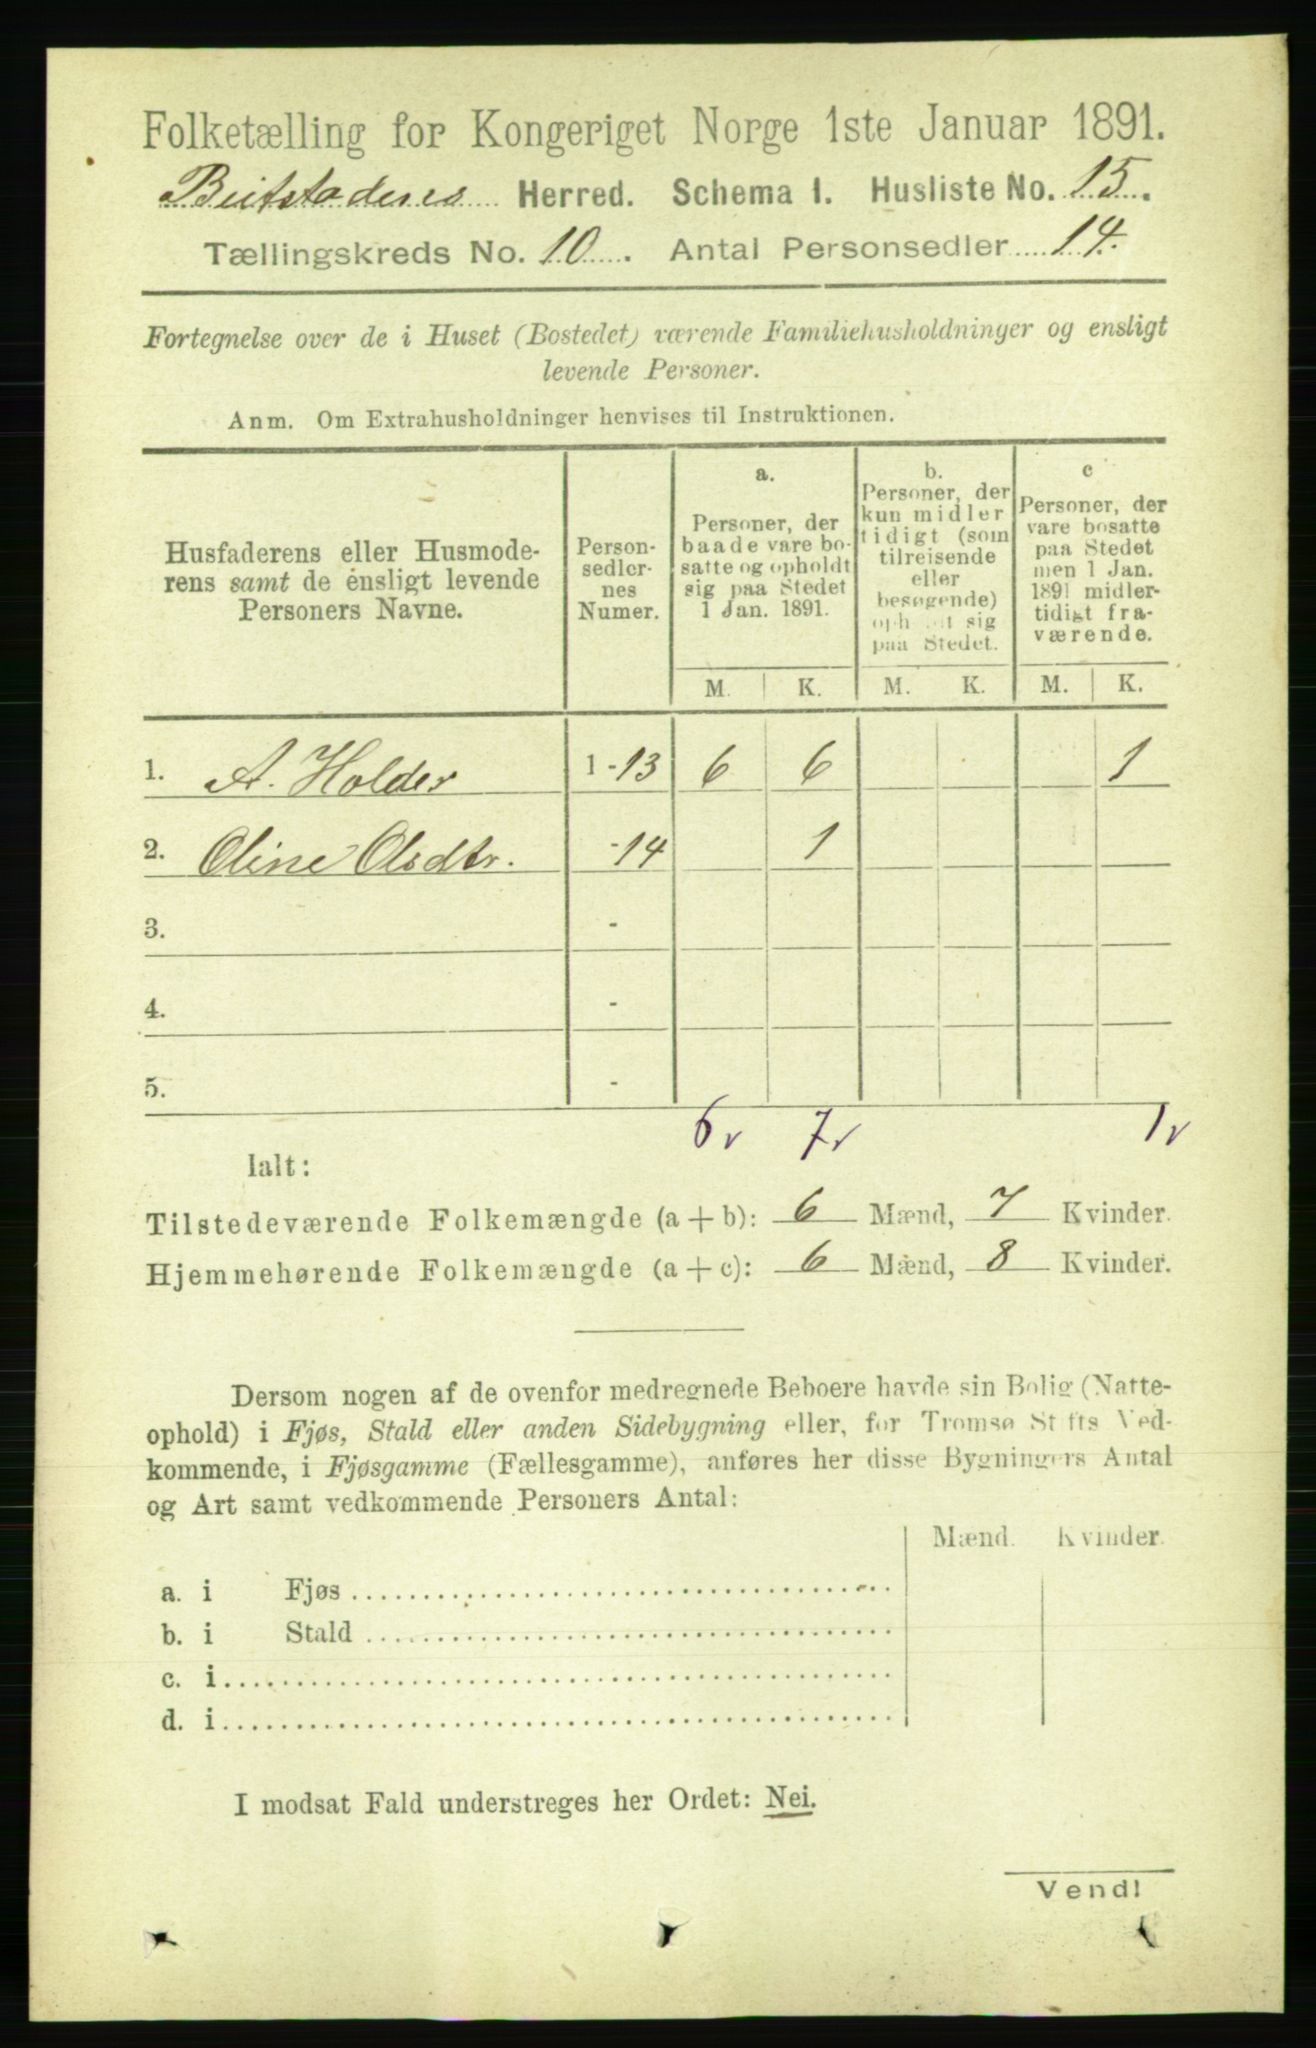 Folketælling for Kongeriget Norge 1ste Januar 1891.
Beitstadenes Herred. Schema 1. Husliste No. 15.
Tællingskreds No. 10. Antal Personsedler 14.
Fortegnelse over de i Huset (Bostedet) værende Familiehusholdninger og ensligt
levende Personer.
Anm. Om Extrahusholdninger henvises til Instruktionen.
Husfaderens eller Husmode-
rens samt de ensligt levende
Personers Navne.
Person-
sedler-
nes
Numer.
a.
Personer, der
baade vare bo-
satte og opholdt
sig paa Stedet
1 Jan. 1891.
b.
Personer, der
kun midler
tidigt (som
tilreisende
eller
besøgende)
oph  lt sig
paa Stedet.
c
Personer, der
vare bosatte
paa Stedet
men 1 Jan.
1891 midler-
tidigt fra-
værende.
M. K. M. K. M. K.
1. A. Holder 1-13 6 6 1
2. Oline Olsdtr. -14 1
3. -
4. -
5. -
6v 7v 1v
Ialt:
Tilstedeværende Folkemængde (a + b): 6 Mænd, 7 Kvinder.
Hjemmehørende Folkemængde (a + c): 6 Mænd, 8 Kvinder.
Dersom nogen af de ovenfor medregnede Beboere havde sin Bolig (Natte-
ophold) i Fjøs, Stald eller anden Sidebygning eller, for Tromsø Stifts Ved-
kommende, i Fjøsgamme (Fællesgamme), anføres her disse Bygningers Antal
og Art samt vedkommende Personers Antal:
Mænd. Kvinder.
a. i Fjøs
b. i Stald
c. i
d. i
I modsat Fald understreges her Ordet: Nei.
Vend!